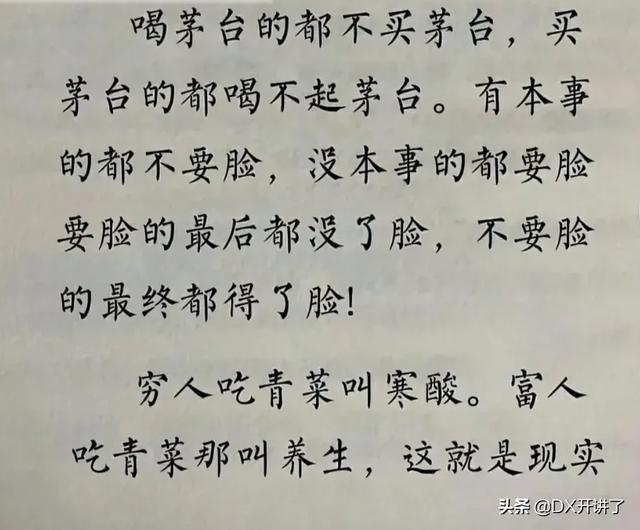 喝茅台的都不买茅台，买
茅台的都喝不起茅台。有本事
的都不要脸，没本事的都要脸
要脸的最后都没了脸，不要脸
的最终都得了脸！
穷人吃青菜叫寒酸。富人
吃青菜那叫养生，这就是现实
头条 @DX开讲了